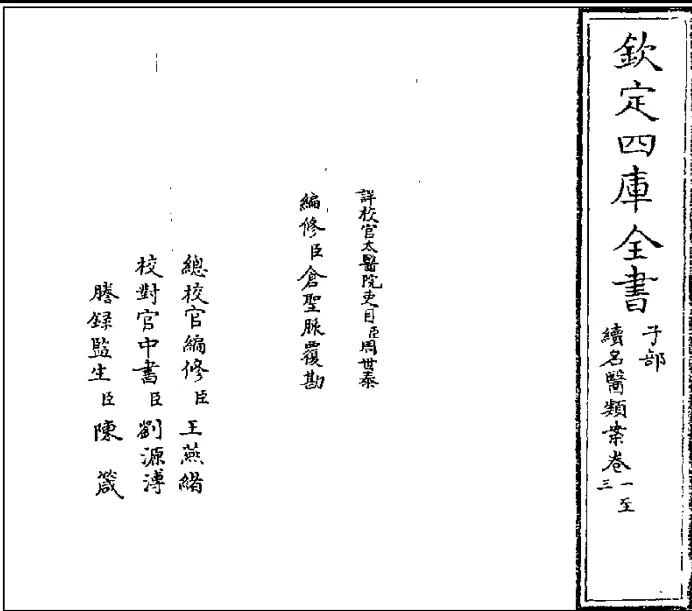 欽定四庫全書
子部
續名醫類案卷一至三
詳校官太醫院吏目臣周世泰
編修臣倉聖脉覆勘
總校官編修臣王燕緒
校對官中書臣劉源溥
謄錄監生臣陳箴